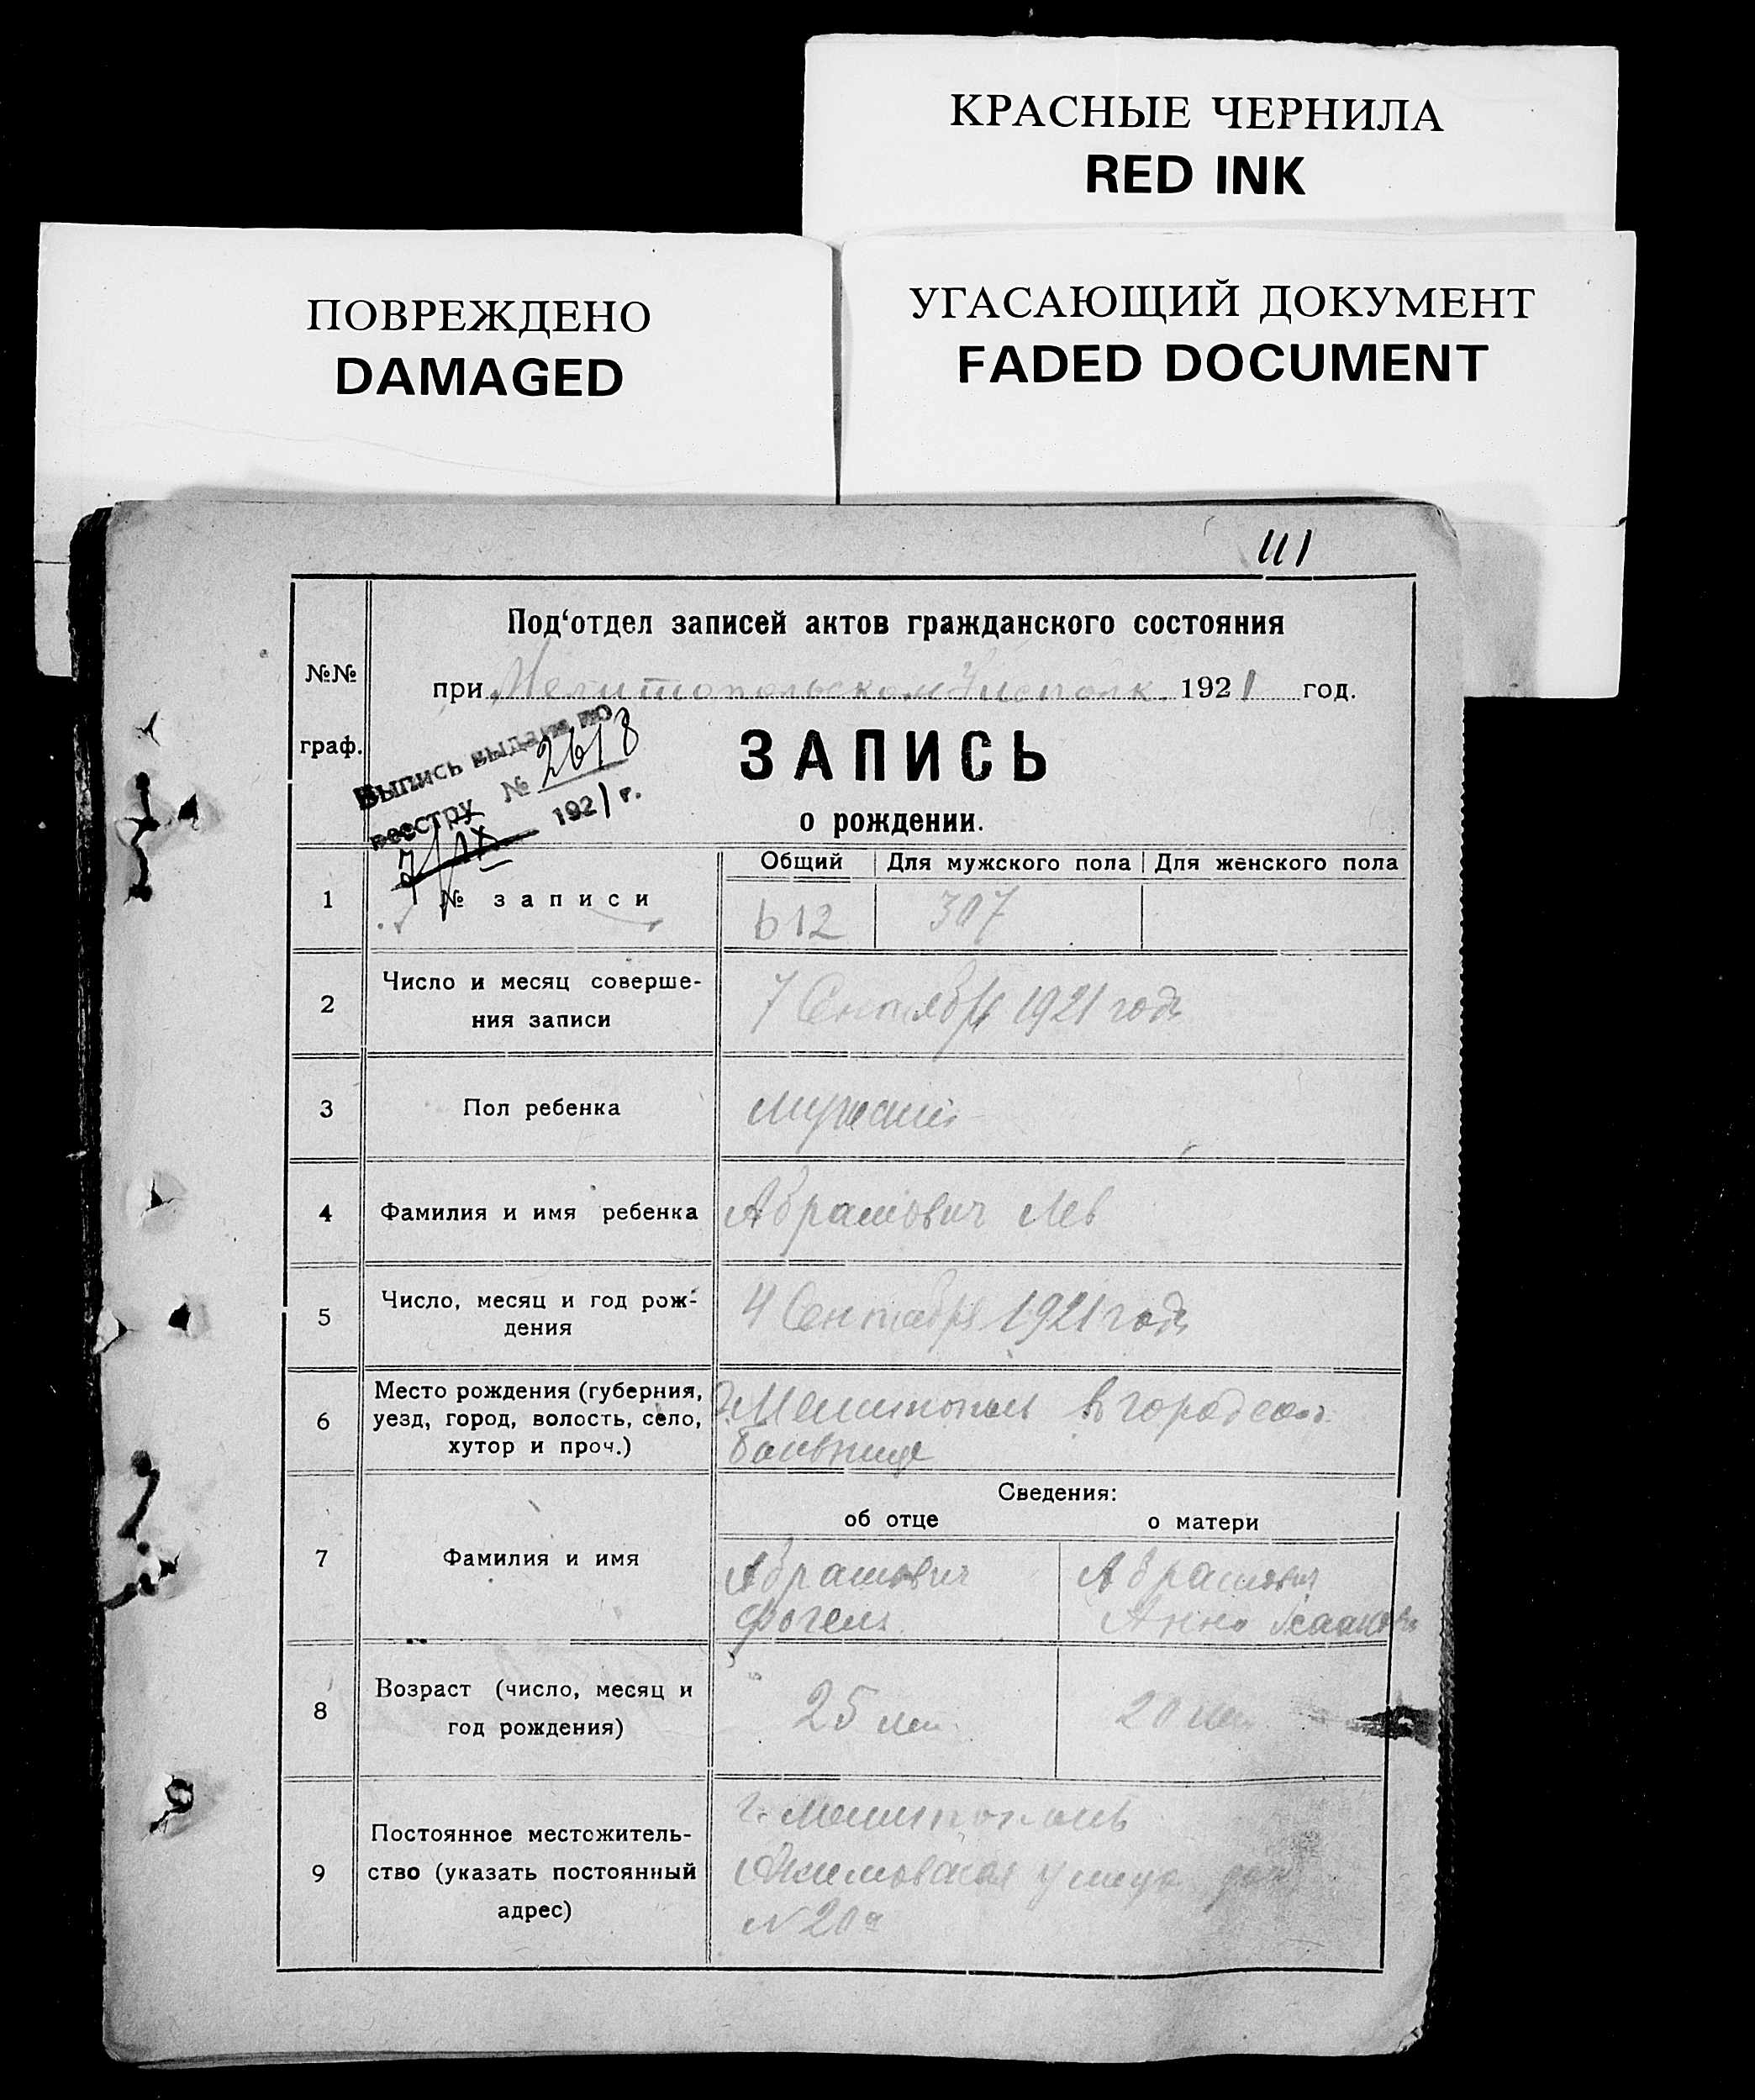 КРАСНЫЕ ЧЕРНИЛА
RED INK
ПОВРЕЖДЕНО
DAMAGED
УГАСАЮЩИЙ ДОКУМЕНТ
FADED DOCUMENT
111
№№
граф.
Под‘отдел записей актов гражданского состояния
при Мелитопольском 1921 год.
Выпись выдана по
реестру № 2618
7/IX 1921 г.
ЗАПИСЬ
о рождении.
Общий Для мужского пола Для женского пола
1 № записи 612 307
2 Число и месяц соверше-
ния записи
7 Сентября 1921 года
3 Пол ребенка мужской
4 Фамилия и имя ребенка Абрамович Лев
5 Число, месяц и год рож-
дения
4 Сентября 1921 года
6 Место рождения (губерния,
уезд, город, волость, село,
хутор и проч.)
г. Мелитополь в городск.
больнице
Сведения:
об отце о матери
7 Фамилия и имя
Абрамович Абрамович
Фогель Анна Исааковн
8 Возраст (число, месяц и
год рождения)
25 лет 20 лет
9 Постоянное местожитель-
ство (указать постоянный
адрес)
г. Мелитополь
Акимовская улица дом
№ 20а